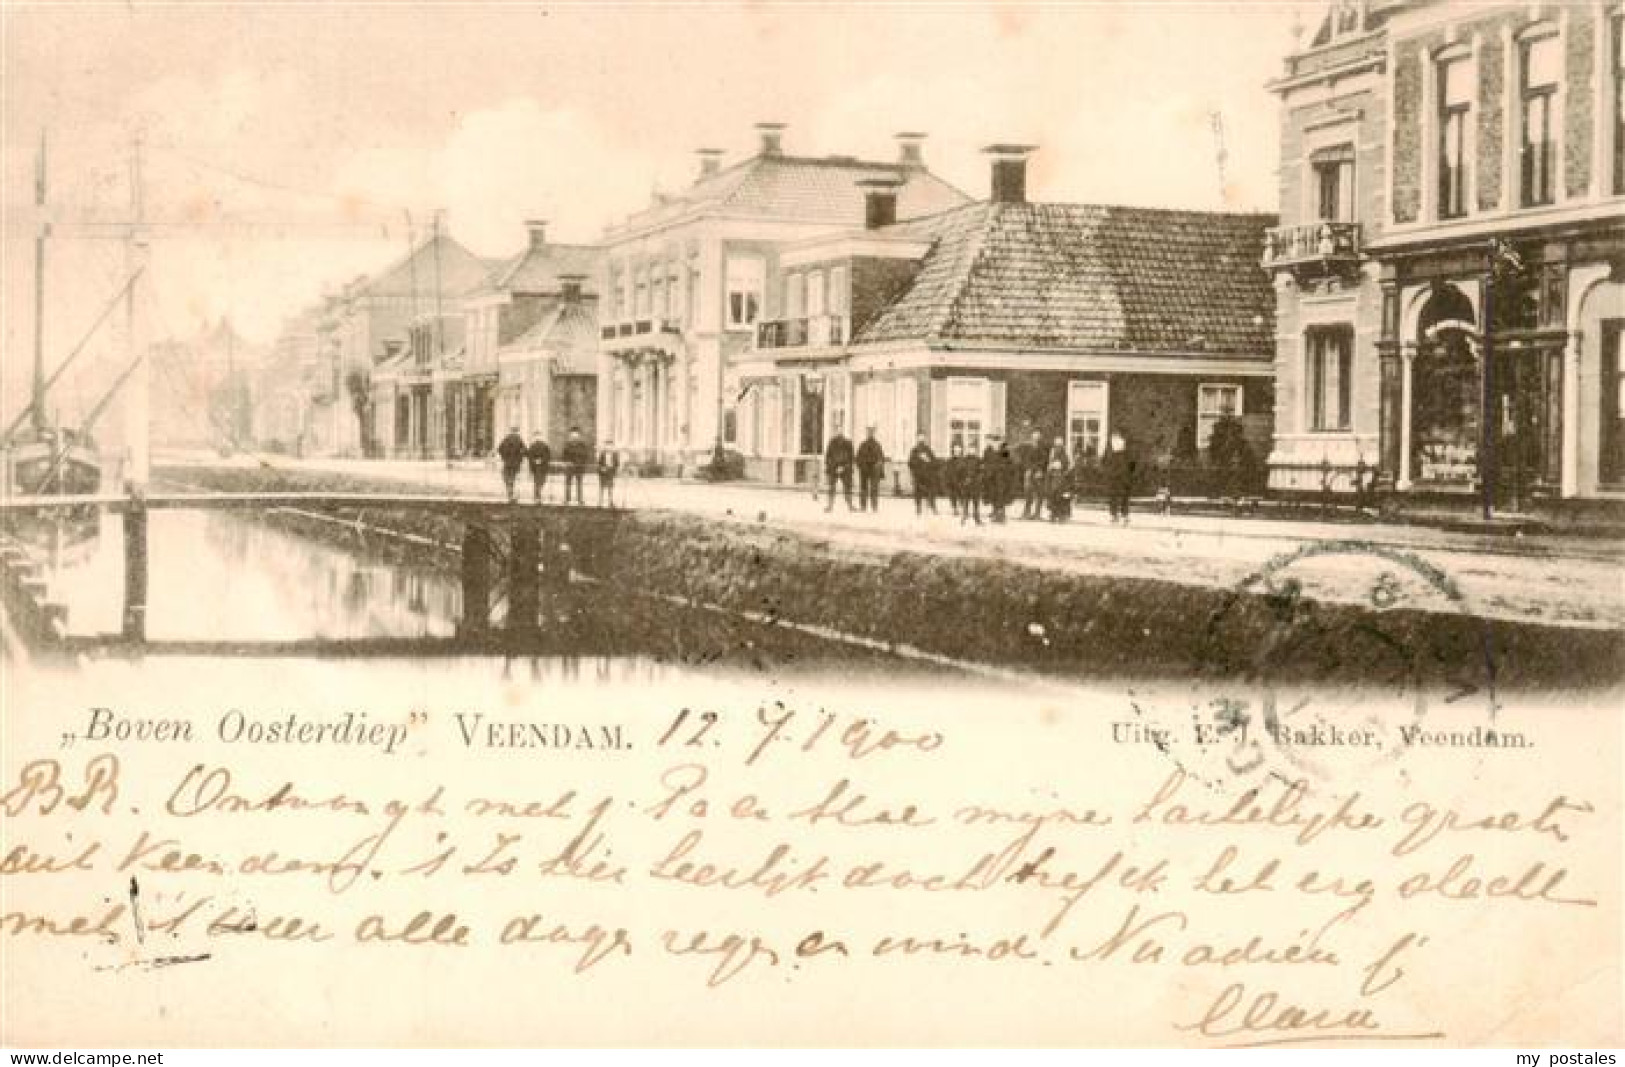 „Boven Oosterdiep" VEENDAM. 12. 7. 1900
Uitg. E. J. Bakker, Veendam.
BR. Ontvangt met Pa en Moe mijne hartelijke groeten
uit Veendam. 't Is hier heerlijk doch tref ik het erg slecht
met 't weer alle dage regen en wind. Nu adieu
Clara
www.delcampe.net
my_postales